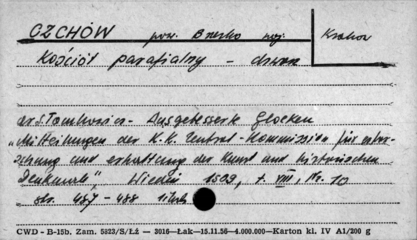 CZCHÓW pow. Brzesko woj. Kraków
Kościół parafialny - dzwon
dr S. Tomkowicz - Ausgebesserte Glocken
"Mitteilungen der K.K. Zentral-Kommission für erfor-
schung und erhaltung der Kunst und historischen
Denkmale", Wiedeń 1909, t. VIII, Nr. 10
str. 487-488
CWD - B-15b, Zam. 5823/S/Łż — 3016—Łak—15.11.56—4.000.000—Karton kl. IV A1/200 g